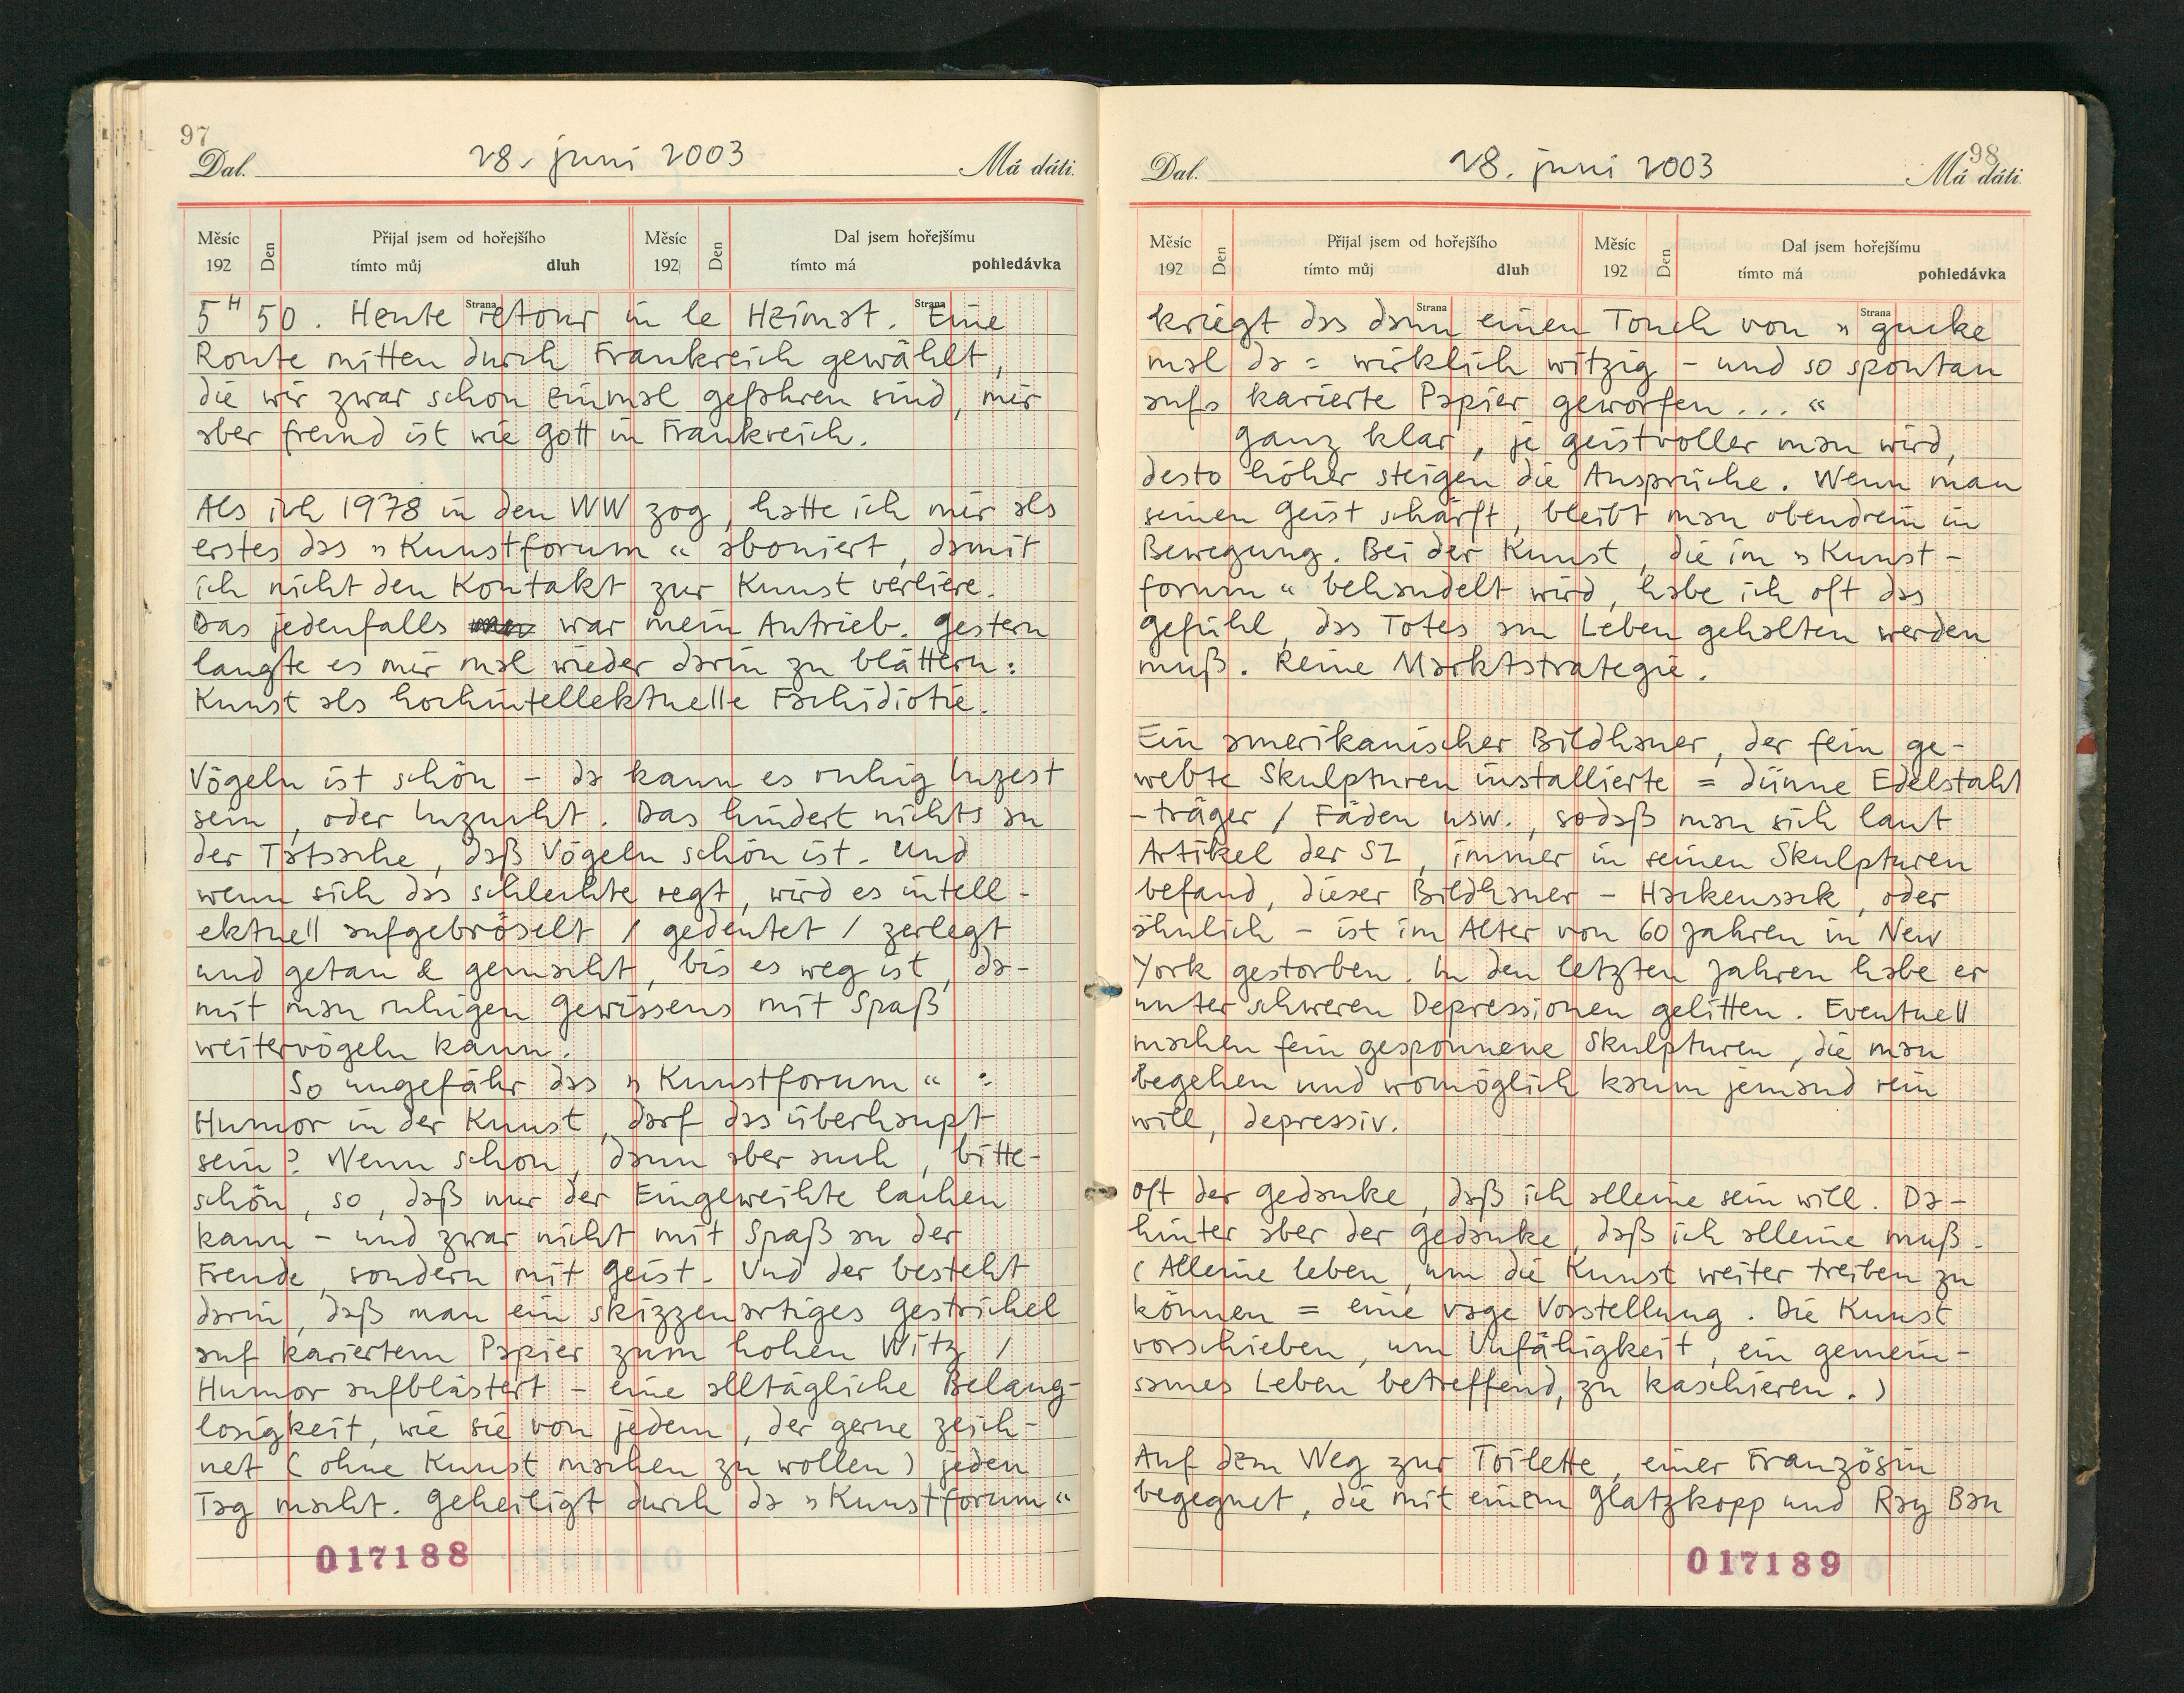 97
Dal. 28. juni 2003 Má dáti.
Měsíc 192 Den Přijal jsem od hořejšího tímto můj dluh Měsíc 192 Den Dal jsem hořejšímu tímto má pohledávka
Strana Strana
5H 50. Heute retour in le Heimat. Eine
Route mitten durch Frankreich gewählt,
die wir zwar schon einmal gefahren sind, mir
aber fremd ist wie Gott in Frankreich.
Als ich 1978 in den WW zog, hatte ich mir als
erstes das »Kunstforum« aboniert, damit
ich nicht den Kontakt zur Kunst verliere.
Das jedenfalls war mein Antrieb. Gestern
langte es mir mal wieder darin zu blättern:
Kunst als hochintellektuelle Fachidiotie.
Vögeln ist schön – da kann es ruhig Inzest
sein, oder Inzucht. Das hindert nichts an
der Tatsache, daß Vögeln schön ist. Und
wenn sich das schlechte regt, wird es intell-
ektuell aufgebröselt / gedeutet / zerlegt
und getan & gemacht, bis es weg ist, da-
mit man ruhigen Gewissens mit Spaß
weitervögeln kann.
So ungefähr das »Kunstforum« :
Humor in der Kunst, darf das überhaupt
sein? Wenn schon, dann aber auch, bitte-
schön, so, daß nur der Eingeweihte lachen
kann – und zwar nicht mit Spaß an der
Freude, sondern mit Geist. Und der besteht
darin, daß man ein skizzenartiges Gestrichel
auf kariertem Papier zum hohen Witz /
Humor aufblästert – eine alltägliche Belang-
losigkeit, wie sie von jedem, der gerne zeich-
net (ohne Kunst machen zu wollen) jeden
Tag macht. Geheiligt durch da »Kunstforum«
017188
98
Dal. 28. juni 2003 Má dáti.
Měsíc 192 Den Přijal jsem od hořejšího tímto můj dluh Měsíc 192 Den Dal jsem hořejšímu tímto má pohledávka
Strana Strana
kriegt das dann einen Touch von »gucke
mal da = wirklich witzig – und so spontan
aufs karierte Papier geworfen...«
Ganz klar, je geistvoller man wird,
desto höher steigen die Ansprüche. Wenn man
seinen Geist schärft, bleibt man obendrein in
Bewegung. Bei der Kunst, die im »Kunst-
forum« behandelt wird, habe ich oft das
Gefühl, das Totes am Leben gehalten werden
muß. Reine Marktstrategie.
Ein amerikanischer Bildhauer, der fein ge-
webte Skulpturen installierte = dünne Edelstahl
-träger / Fäden usw., sodaß man sich laut
Artikel der SZ, immer in seinen Skulpturen
befand, dieser Bildhauer – Hackensack, oder
ähnlich – ist im Alter von 60 Jahren in New
York gestorben. In den letzten Jahren habe er
unter schweren Depressionen gelitten. Eventuell
machen fein gesponnene Skulpturen, die man
begehen und womöglich kaum jemand rein
will, depressiv.
Oft der Gedanke, daß ich alleine sein will. Da-
hinter aber der Gedanke, daß ich alleine muß.
(Alleine leben, um die Kunst weiter treiben zu
können = eine vage Vorstellung. Die Kunst
vorschieben, um Unfähigkeit, ein gemein-
sames Leben betreffend, zu kaschieren.)
Auf dem Weg zur Toilette, einer Französin
begegnet, die mit einem Glatzkopp und Ray Ban
017189